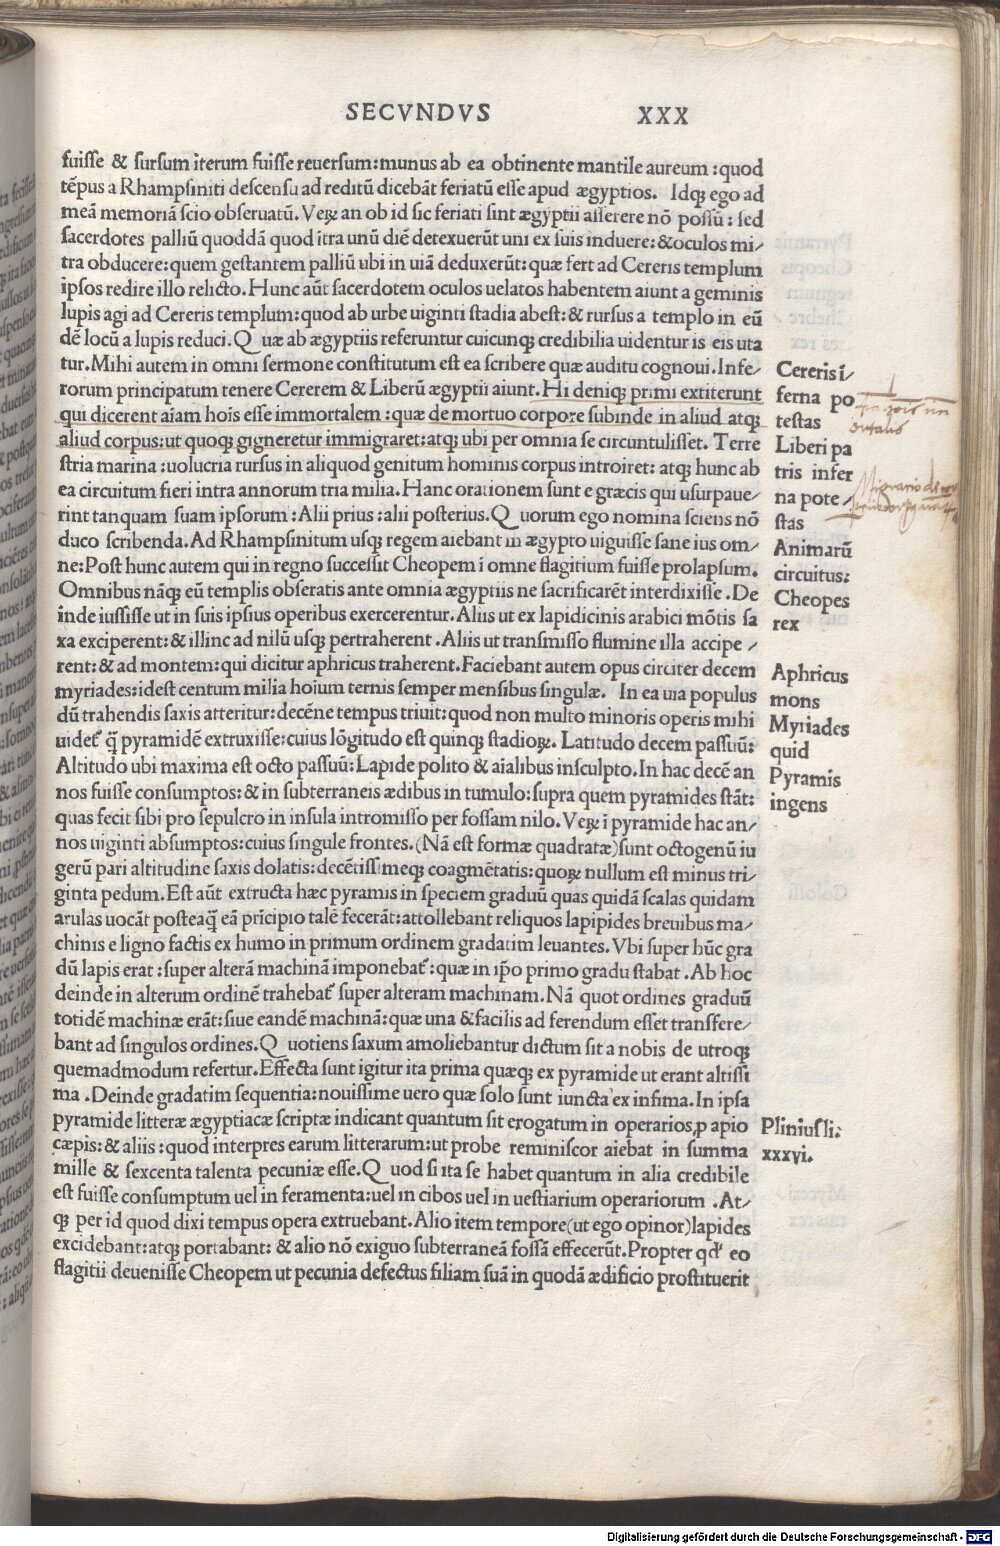 SECVNDVS XXX
fuisse & sursum iterum fuisse reuersum:munus ab ea obtinente mantile aureum:quod
tēpus a Rhampsiniti descensu ad reditū dicebāt feriatū esse apud ægyptios. Idqȝ ego ad
meā memoriā scio obseruatū. Veꝝ an ob id sic feriati sint ægyptii asserere nō possū: sed
sacerdotes palliū quoddā quod itra unū diē detexuerūt uni ex suis induere:&oculos mi-
tra obducere:quem gestantem palliū ubi in uiā deduxerūt:quæ fert ad Cereris templum
ipsos redire illo relicto.Hunc aūt sacerdotem oculos uelatos habentem aiunt a geminis
lupis agi ad Cereris templum:quod ab urbe uiginti stadia abest:& rursus a templo in eū
dē locū a lupis reduci.Quæ ab ægyptiis referuntur cuicunqȝ credibilia uidentur is eis uta
tur.Mihi autem in omni sermone constitutum est ea scribere quæ auditu cognoui.Infe-
rorum principatum tenere Cererem & Liberū ægyptii aiunt.Hi deniqȝ primi extiterunt
qui dicerent aīam hoīs esse immortalem:quæ de mortuo corpore subinde in aliud atqȝ
aliud corpus:ut quoqȝ gigneretur immigraret:atqȝ ubi per omnia se circuntulisset. Terre
stria marina:uolucria rursus in aliquod genitum hominis corpus introiret: atqȝ hunc ab
ea circuitum fieri intra annorum tria milia.Hanc orationem sunt e græcis qui usurpaue-
rint tanquam suam ipsorum:Alii prius:alii posterius.Quorum ego nomina sciens nō
duco scribenda.Ad Rhampsinitum usqȝ regem aiebant in ægypto uiguisse sane ius om-
ne:Post hunc autem qui in regno successit Cheopem ī omne flagitium fuisse prolapsum.
Omnibus nāqȝ eū templis obseratis ante omnia ægyptiis ne sacrificarēt interdixisse.De
inde iussisse ut in suis ipsius operibus exercerentur.Aliis ut ex lapidicinis arabici mōtis sa
xa exciperent:& illinc ad nilū usqȝ pertraherent.Aliis ut transmisso flumine illa accipe-
rent:& ad montem:qui dicitur aphricus traherent.Faciebant autem opus circiter decem
myriades:idest centum milia hoīum ternis semper mensibus singulæ. In ea uia populus
dū trahendis saxis atteritur:decēne tempus triuit:quod non multo minoris operis mihi
uidet q̄ pyramidē extruxisse:cuius lōgitudo est quinqȝ stadioꝝ. Latitudo decem passuū:
Altitudo ubi maxima est octo passuū:Lapide polito & aīalibus insculpto.In hac decē an
nos fuisse consumptos:& in subterraneis ædibus in tumulo:supra quem pyramides stāt:
quas fecit sibi pro sepulcro in insula intromisso per fossam nilo.Veꝝ ī pyramide hac an-
nos uiginti absumptos:cuius singule frontes.(Nā est formæ quadratæ)sunt octogenū iu
gerū pari altitudine saxis dolatis:decētissimeqȝ coagmētatis:quoꝝ nullum est minus tri-
ginta pedum.Est aūt extructa hæc pyramis in speciem graduū quas quidā scalas quidam
arulas uocāt posteaq̄ eā prīcipio talē fecerāt:attollebant reliquos lapipides breuibus ma-
chinis e ligno factis ex humo in primum ordinem gradatim leuantes.Vbi super hūc gra
dū lapis erat:super alterā machinā imponebat:quæ in ipo primo gradu stabat.Ab hoc
deinde in alterum ordinē trahebat super alteram machinam.Nā quot ordines graduū
totidē machinæ erāt:siue eandē machinā:quæ una &facilis ad ferendum esset transfere-
bant ad singulos ordines.Quotiens saxum amoliebantur dictum sit a nobis de utroqȝ
quemadmodum refertur.Effecta sunt igitur ita prima quæqȝ ex pyramide ut erant altissi
ma.Deinde gradatim sequentia:nouissime uero quæ solo sunt iuncta ex infima.In ipsa
pyramide litteræ ægyptiacæ scriptæ indicant quantum sit erogatum in operarios,ꝓ apio
cæpis:& aliis:quod interpres earum litterarum:ut probe reminiscor aiebat in summa
mille & sexcenta talenta pecuniæ esse.Quod si ita se habet quantum in alia credibile
est fuisse consumptum uel in feramenta:uel in cibos uel in uestiarium operariorum.At-
qȝ per id quod dixi tempus opera extruebant.Alio item tempore(ut ego opinor)lapides
excidebant:atqȝ portabant: & alio nō exiguo subterraneā fossā effecerūt.Propter qd eo
flagitii deuenisse Cheopem ut pecunia defectus filiam suā in quodā ædificio prostituerit
Cereris ī-
ferna po
testas
Liberi pa
tris infer
na pote-
stas
Animarū
circuitus:
Cheopes
rex
Aphricus
mons
Myriades
quid
Pyramis
ingens
Plinius li:
xxxvi.
Digitalisierung gefördert durch die Deutsche Forschungsgemeinschaft - DFG